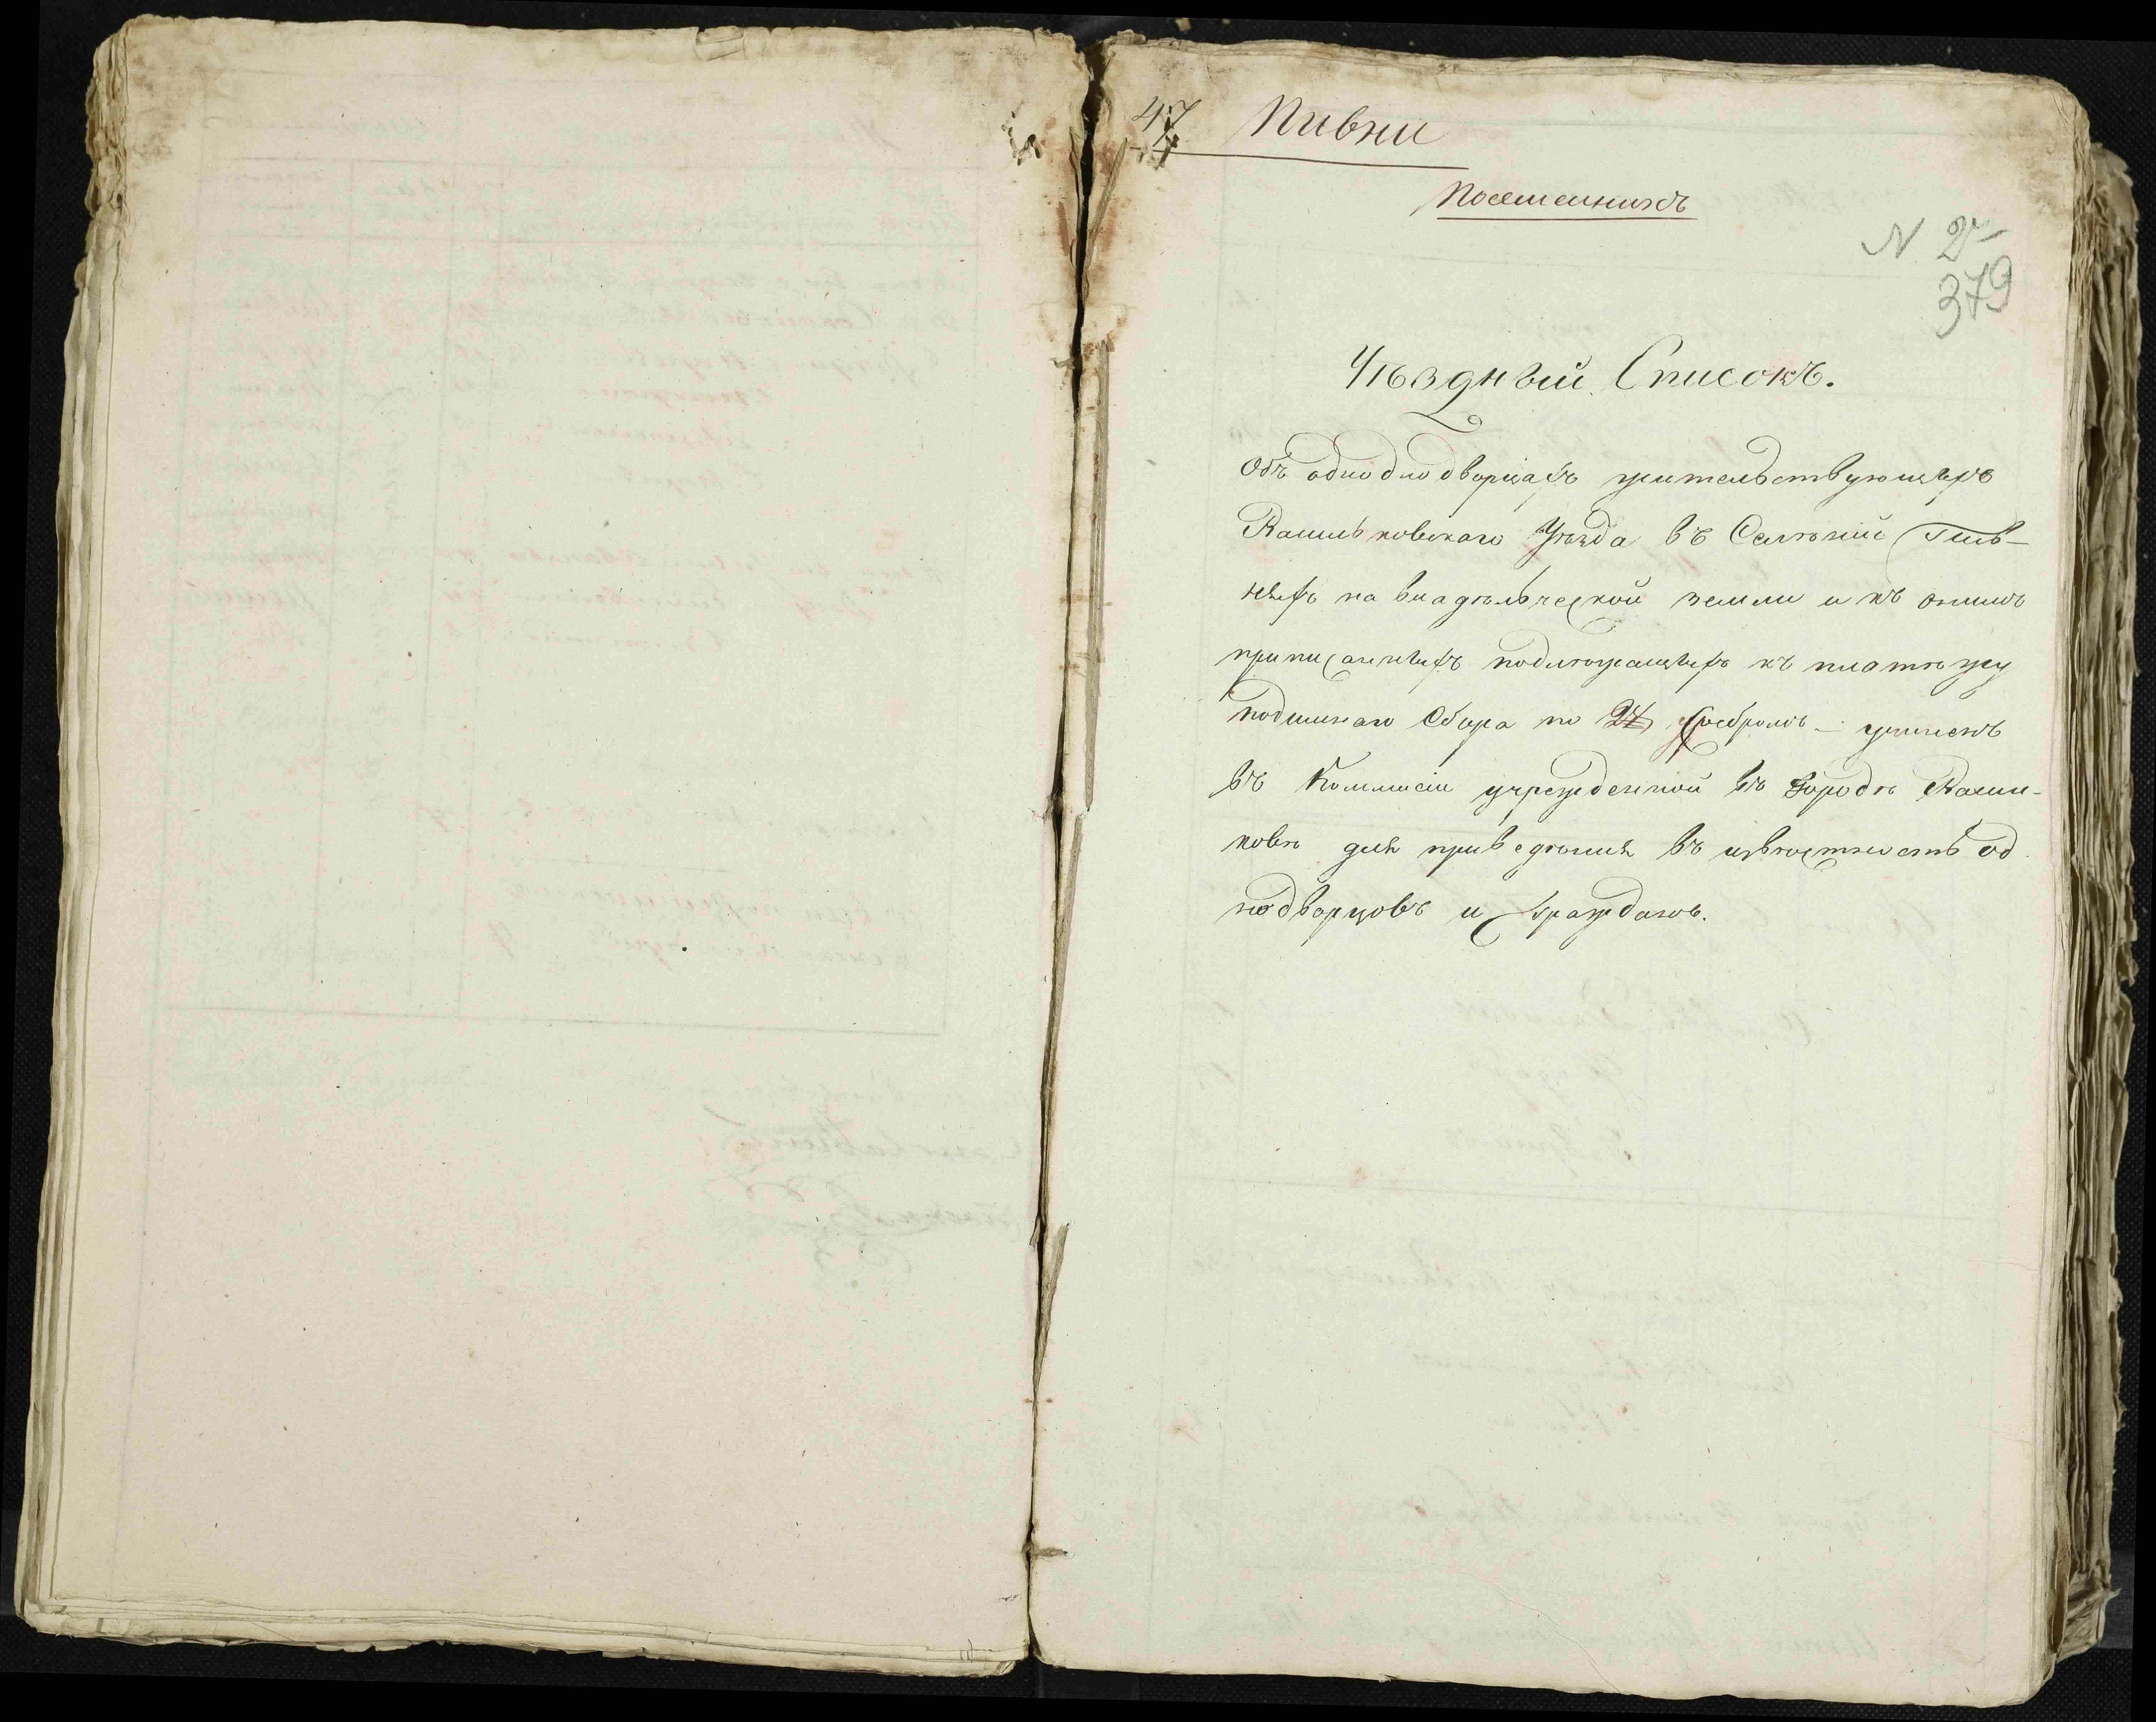 47 Пивни
Посемейникъ
N 2
379
Уѣздный Списокъ.
Объ однодлодворцахъ жительствующихъ
Васильковскаго Уѣзда въ Селѣніи Пив-
няхъ на владѣльческой земли и къ онымъ
приписанныхъ подлежащихъ къ платѣжу
подымнаго Сбора по сѣребромъ - учиненъ
въ Коммисіи учрежденной въ городѣ Васил-
ковѣ для приведѣнія въ извѣстность од
нодворцовъ и гражданъ.